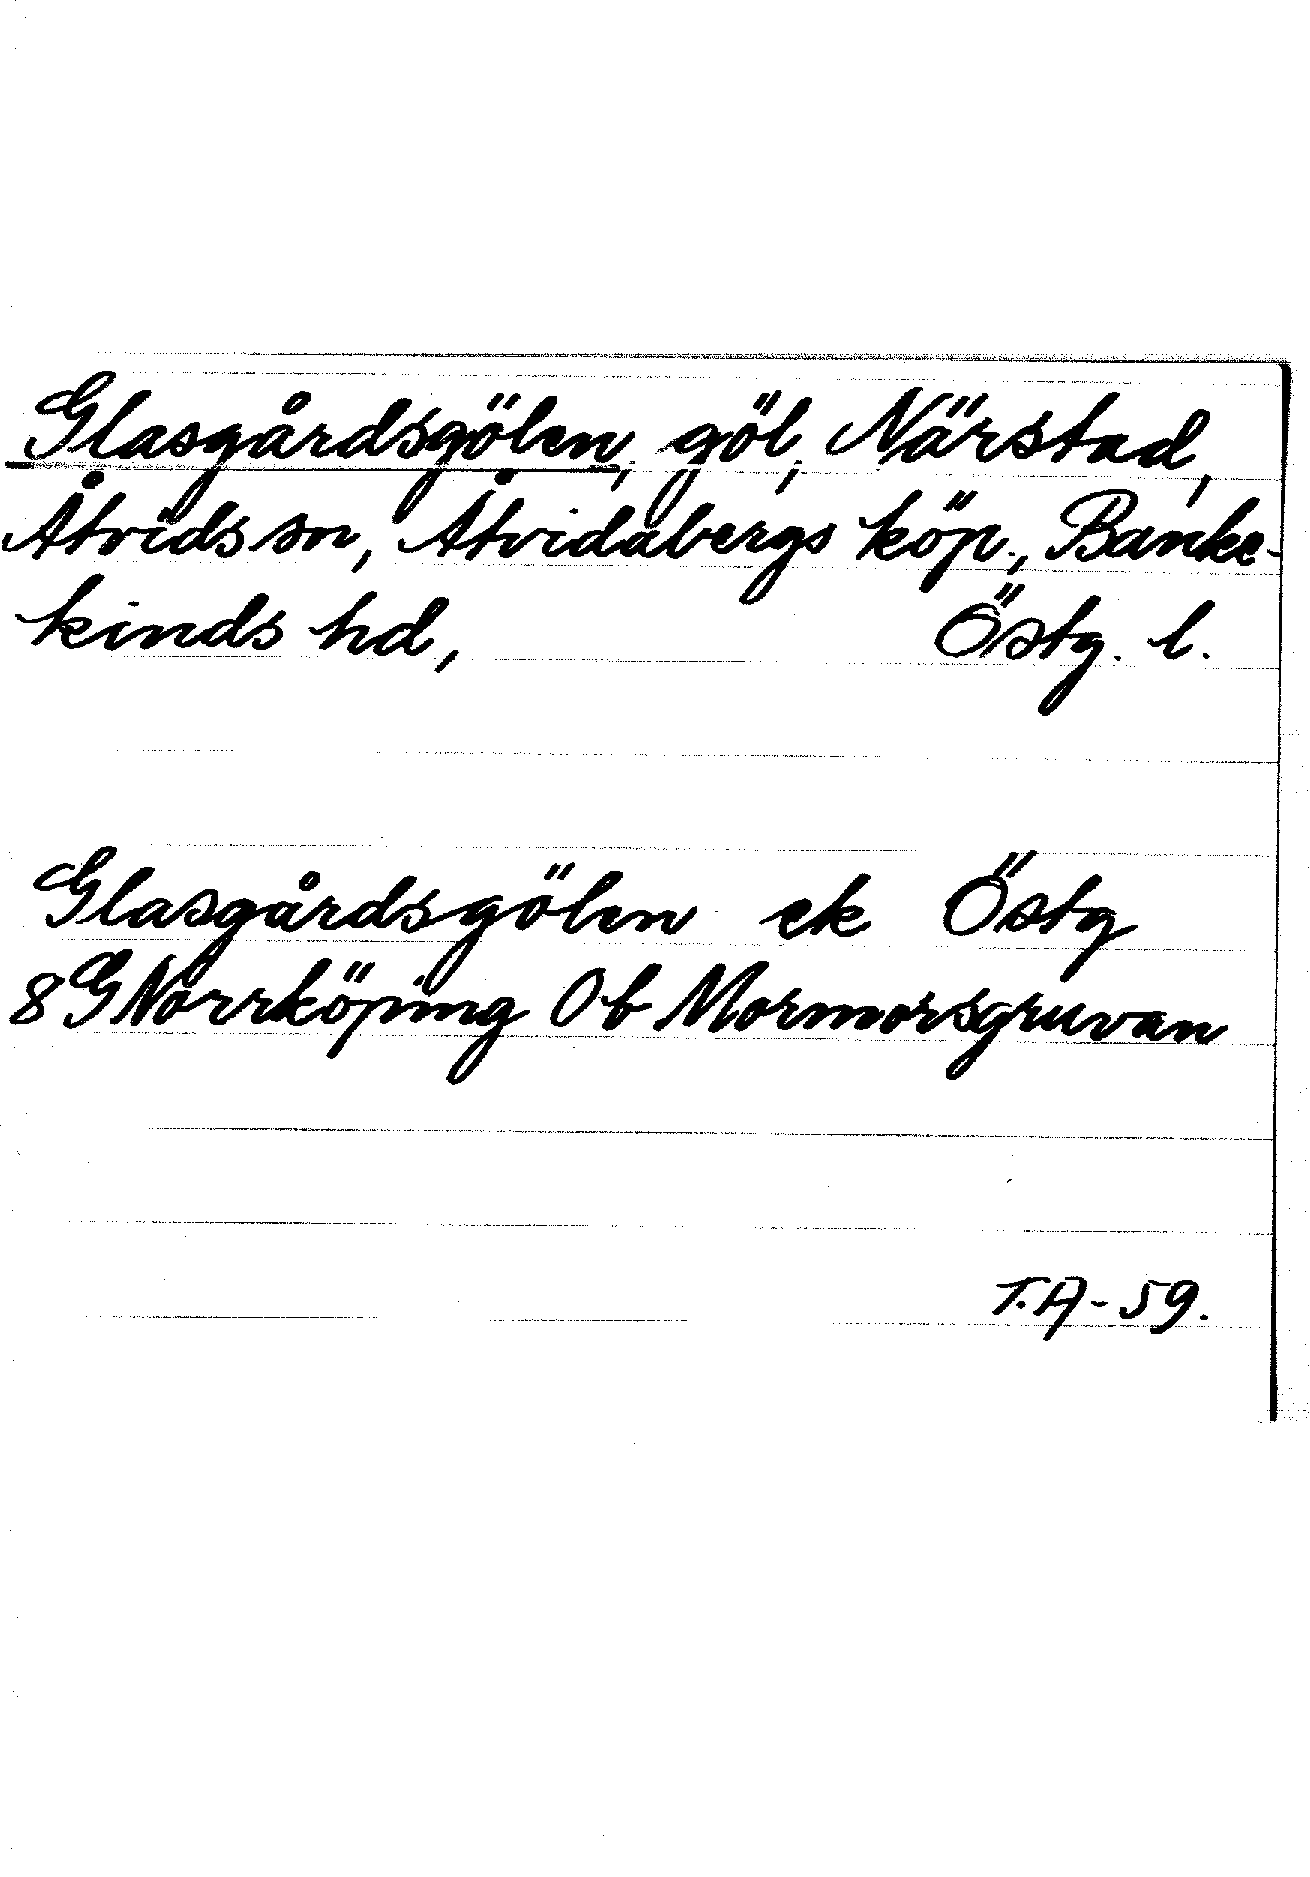 Glasgårdsgölen, göl, Närstad,
Åtvids sn, Åtvidabergs köp., Banke-
kinds hd, Östg. l.
Glasgårdsgölen ek Östg
8G Norrköping 0b Mormorsgruvan
T.A-59.